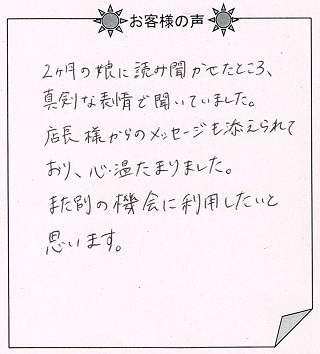 お客様の声
2ヶ月の娘に読み聞かせたところ、
真剣な表情で聞いていました。
店長様からのメッセージも添えられて
おり、心温たまりました。
また別の機会に利用したいと
思います。